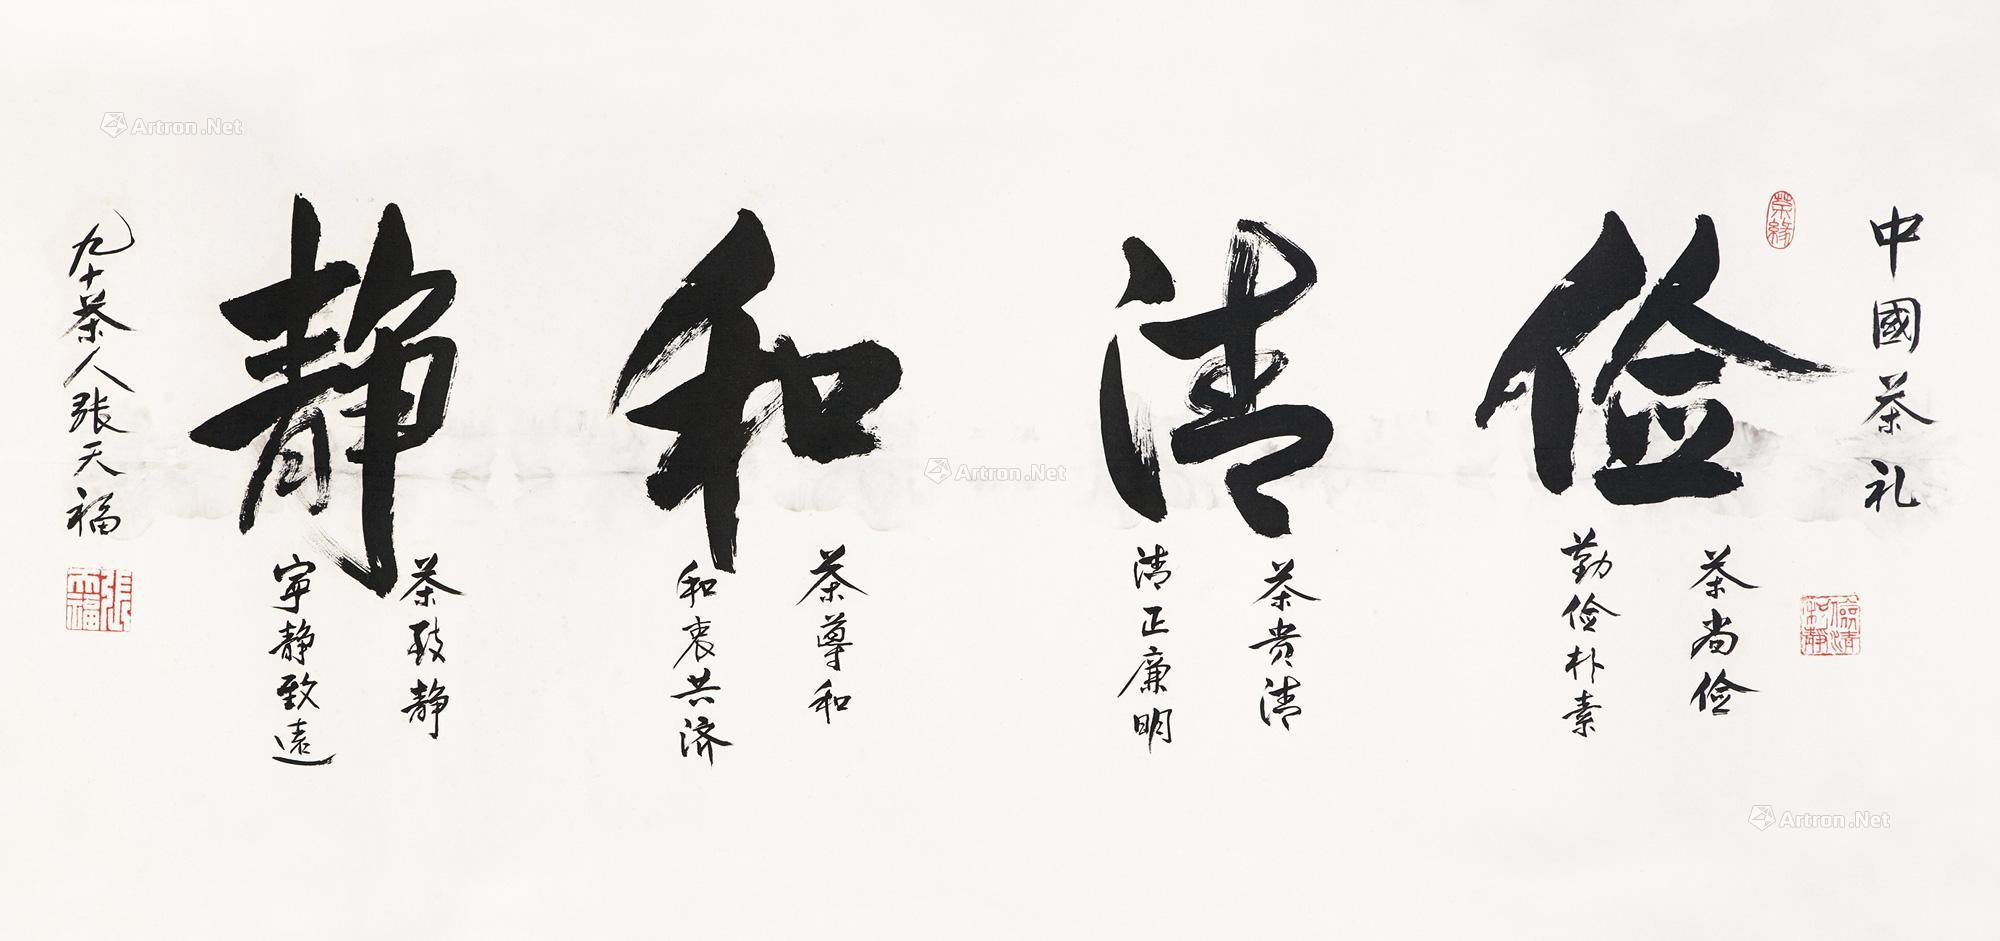 中國茶礼
俭
茶尚俭
勤俭朴素
清
茶贵清
清正廉明
和
茶尊和
和衷共济
静
茶致静
宁静致遠
九十茶人张天福
茶緣
俭清和靜
张天福
Artron.Net
Artron.Net
Artron.Net